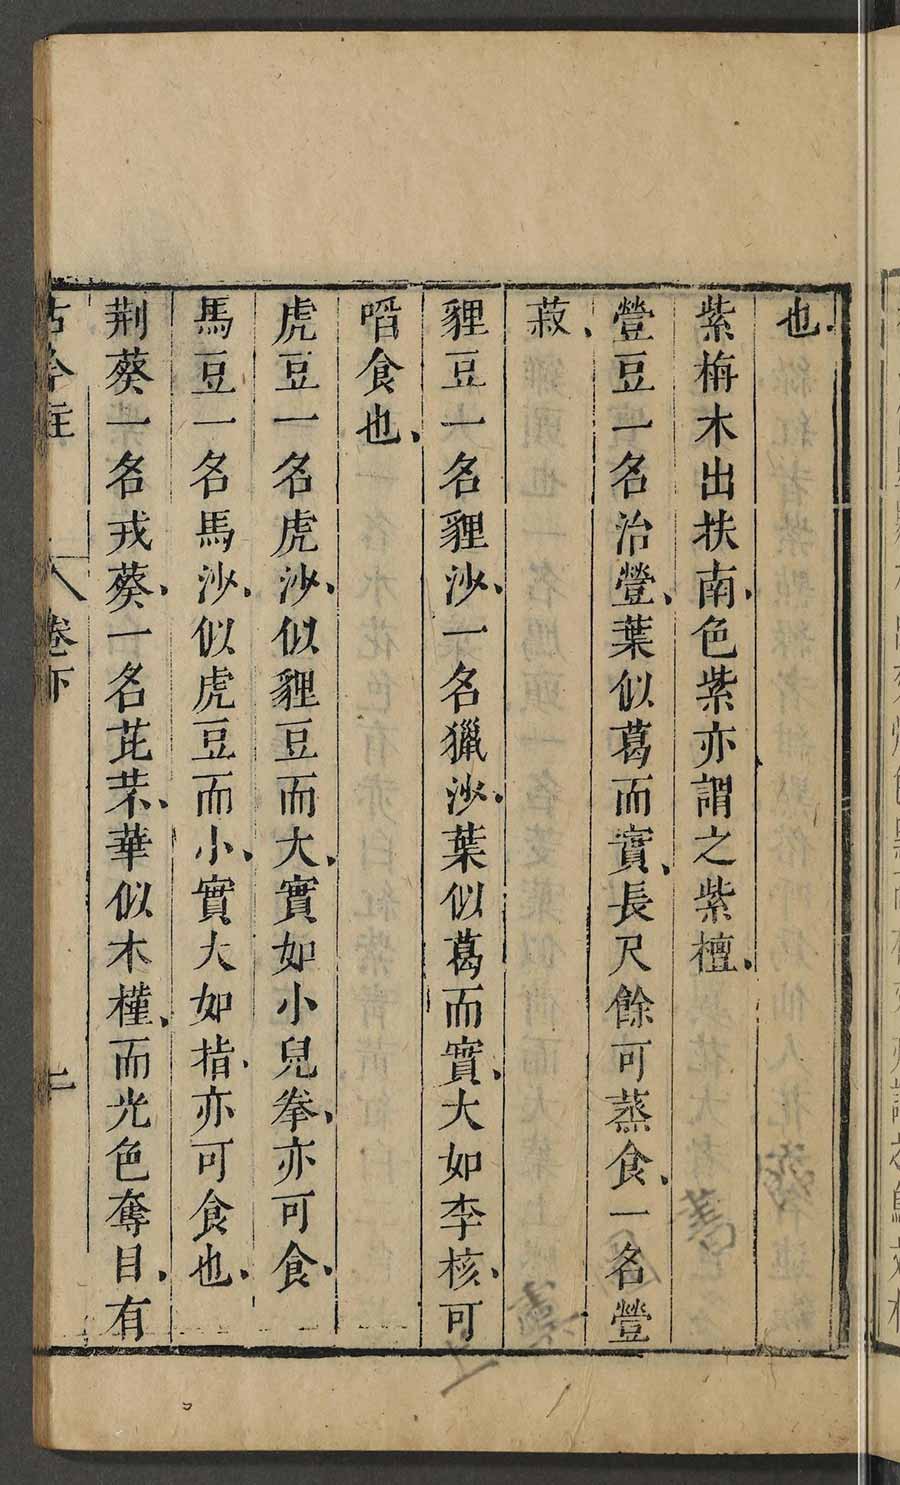 也、
紫栴木出扶南、色紫亦謂之紫檀、
營豆一名治營、葉似葛而實、長尺餘可蒸食、一名營
菽、
貍豆一名貍沙、一名獵沙、葉似葛而實、大如李核、可
㗖食也、
虎豆一名虎沙、似貍豆而大、實如小兒拳、亦可食、
馬豆一名馬沙、似虎豆而小、實大如指、亦可食也、
荆葵一名戎葵、一名芘芣、華似木槿、而光色奪目、有
古今註 卷下 二